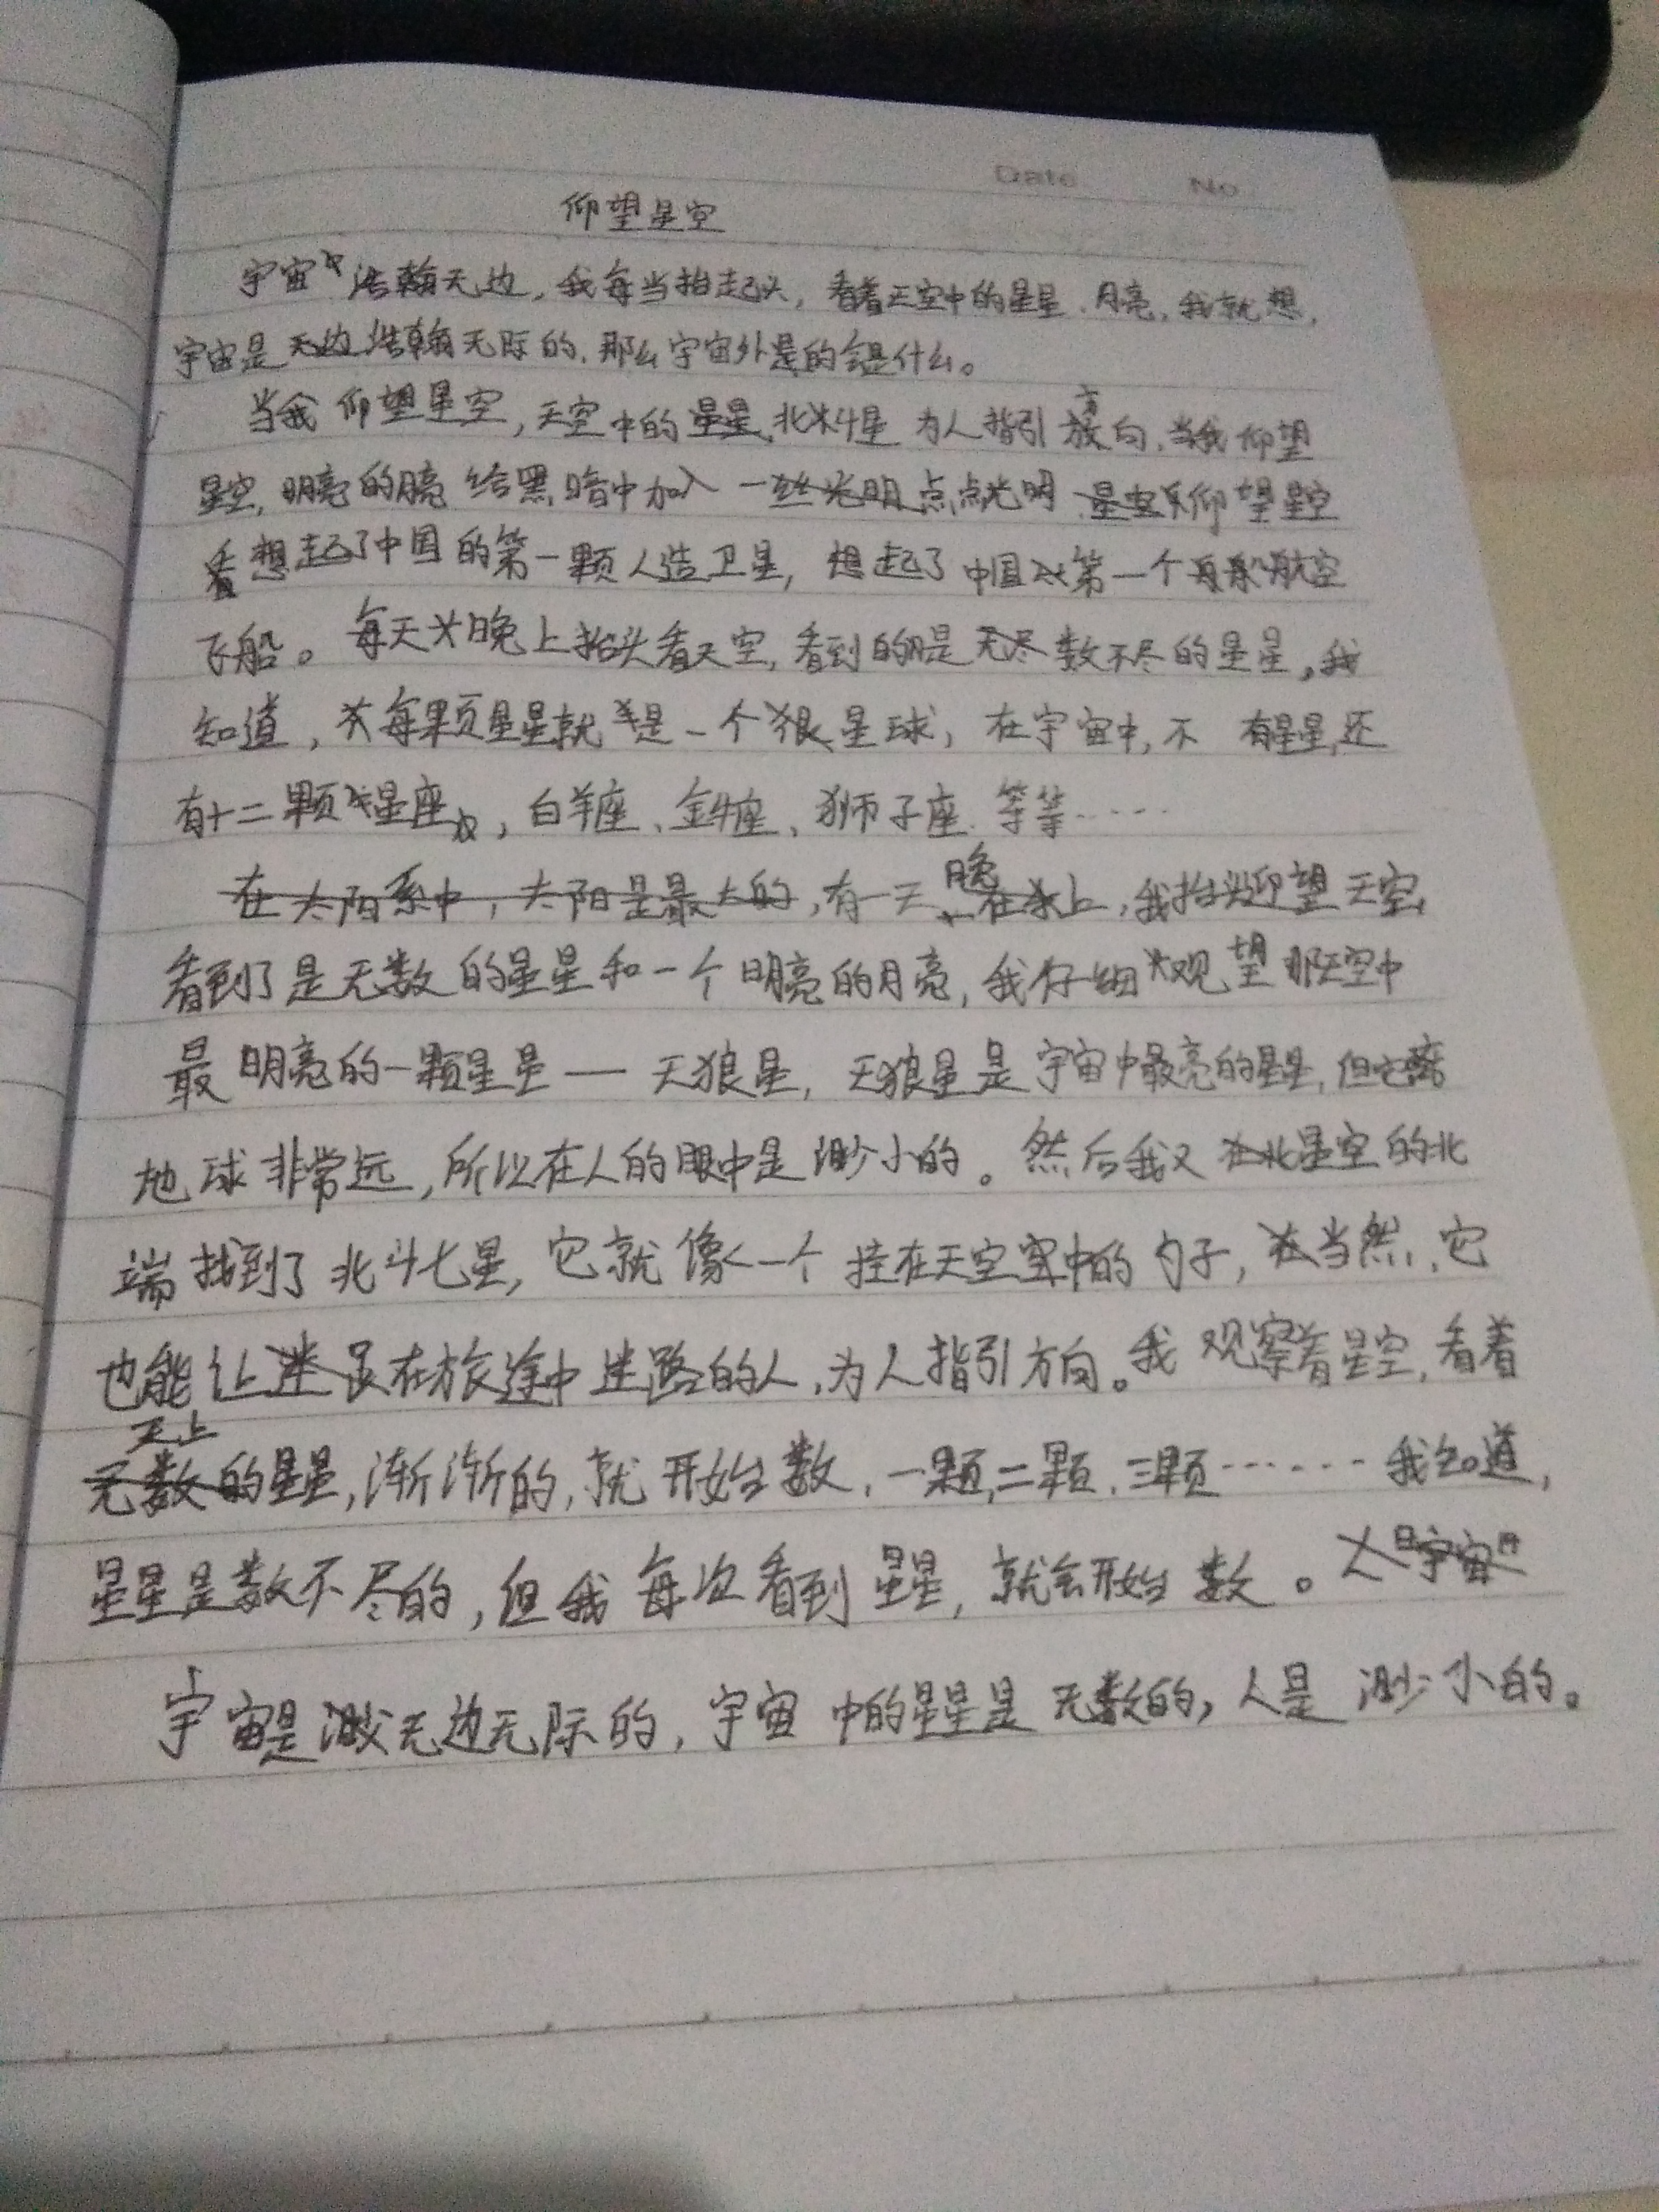 Date No
仰望星空
宇宙浩瀚无边，我每当抬起头，看着天空中的星星、月亮，我就想，
宇宙是浩瀚无际的，那么宇宙外是的会是什么。
当我仰望星空，天空中的北斗星为人指引方向，当我仰望
星空，明亮的月亮给黑暗中加入点点光明，仰望星空
想起了中国的第一颗人造卫星，想起了中国第一个航空
飞船。每天晚上抬头看天空，看到的是数不尽的星星，我
知道，每颗星星就是一个星球，在宇宙中，不有星星，还
有十二颗星座，白羊座、金牛座、狮子座、等等……
在太阳系中，太阳是最大的，有一天晚上，我抬头仰望天空，
看到了是无数的星星和一个明亮的月亮，我仔细观望那天空中
最明亮的一颗星星——天狼星，天狼星是宇宙中最亮的星星，但它离
地球非常远，所以在人的眼中是渺小的。然后我又在北星空的北
端找到了北斗七星，它就像一个挂在天空中的勺子，当然，它
也能让在旅途中迷路的人，为人指引方向。我观察着星空，看着
天上
无数的星星，渐渐的，就开始数，一颗，二颗，三颗……我知道，
星星是数不尽的，但我每次看到星星，就会开始数。宇宙
宇宙是无边无际的，宇宙中的星星是无数的，人是渺小的。